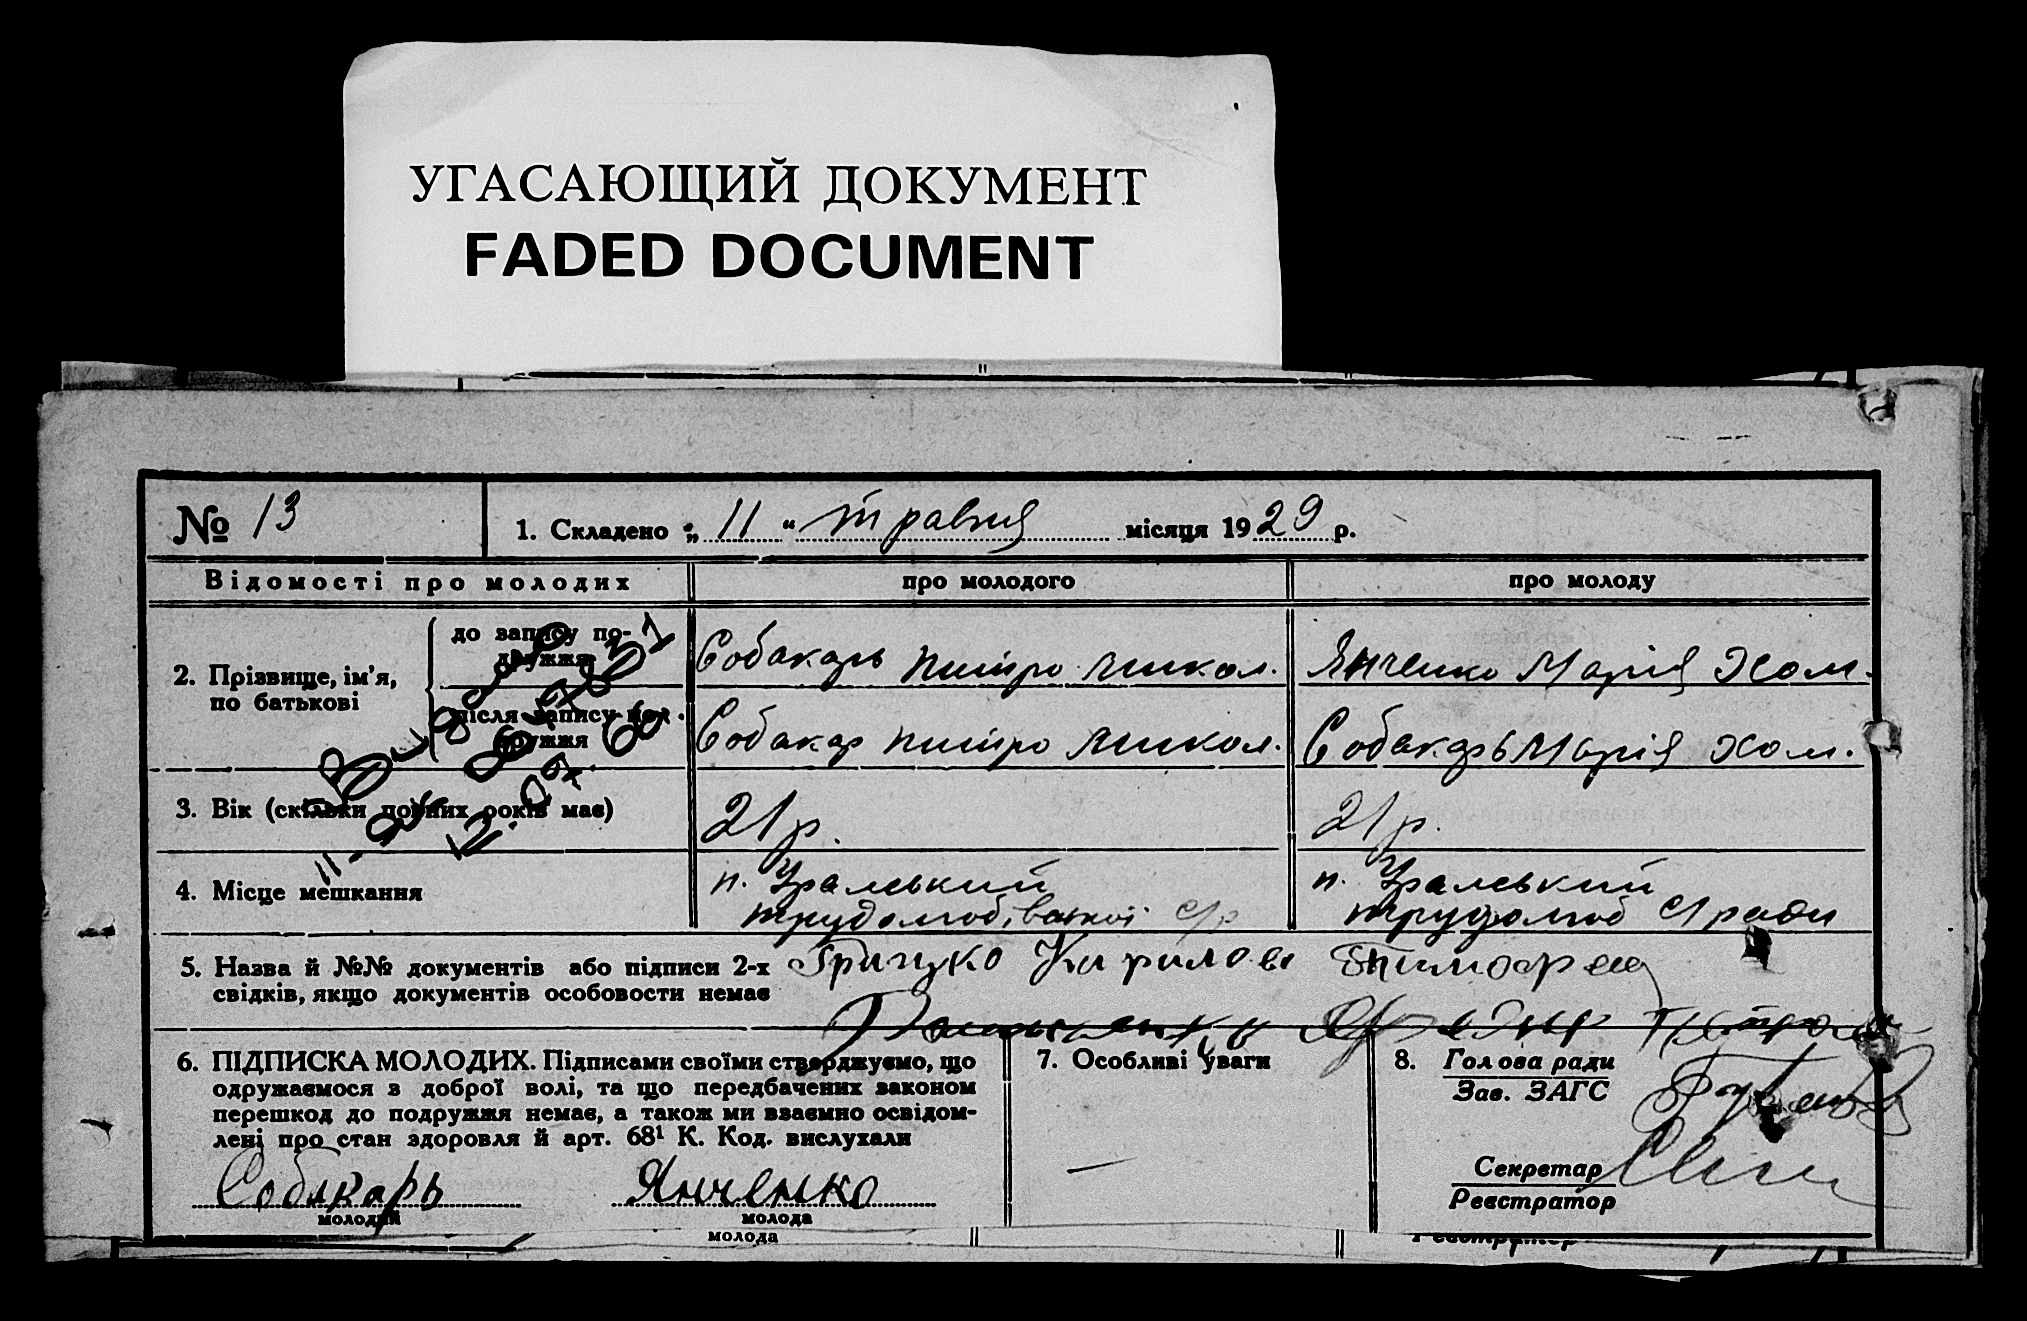 УГАСАЮЩИЙ ДОКУМЕНТ
FADED DOCUMENT
№ 13
1. Складено „ 11 “ травня місяця 1929 р.
Відомості про молодих
про молодого
про молоду
2. Прізвище, ім'я, по батькові
до запису по-
дружжя
Собакарь Пилипо Микол.
Янченко Марія Хом.
після запису по-
дружжя
Собакар Микол.
Собакарь Марія Хом.
3. Вік (скільки повних років має)
21 р.
21 р.
4. Місце мешкання
п. Уралський
трудолюбівської с/р
п. Уралський
трудолюб с/ради
5. Назва й №№ документів або підписи 2-х
свідків, якщо документів особовости немає
Грицко Кирилов
6. ПІДПИСКА МОЛОДИХ. Підписами своїми стверджуємо, що
одружаємося з доброї волі, та що передбачених законом
перешкод до подружжя немає, а також ми взаємно освідом-
лені про стан здоровля й арт. 68¹ К. Код. вислухали
Собакарь
молодий
Янченко
молода
молода
7. Особливі уваги
—
8. Голова ради
Зав. ЗАГС
Секретар
Реєстратор
Реєстратор